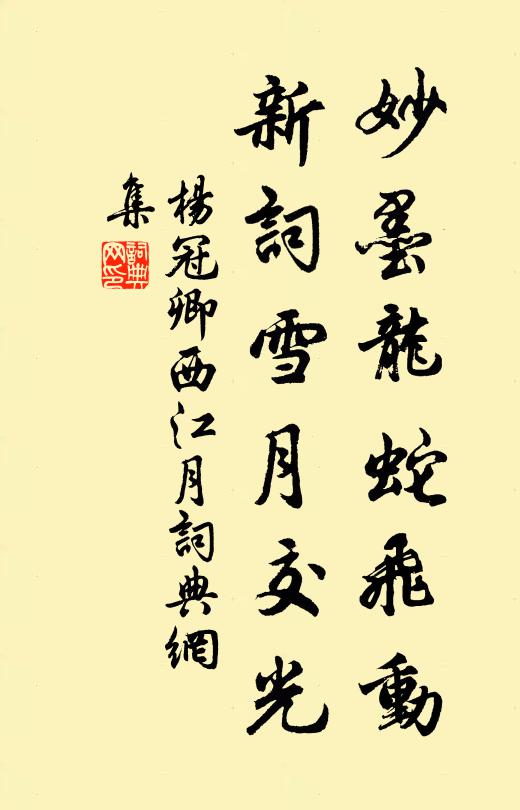 妙墨龍蛇飛動
新詞雪月交光
楊冠卿西江月詞典網
集
詞典網印